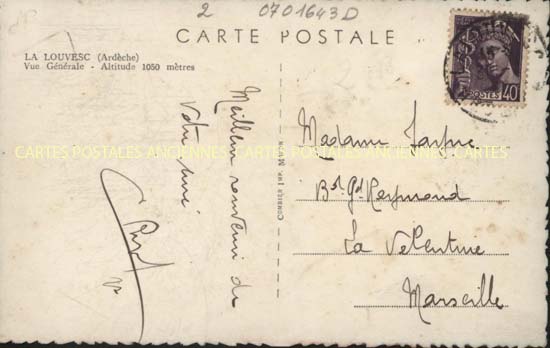 2 0701643D
CARTE POSTALE
LA LOUVESC (Ardèche)
Vue Générale - Altitude 1050 mètres
Meilleur souvenir de
Votre ami
COMBIER IMP. MACON
POSTES 40
CARTES POSTALES ANCIENNES CARTES POSTALES ANCIENNES CARTES
Madame
Bd Gd
La Valentine
Marseille